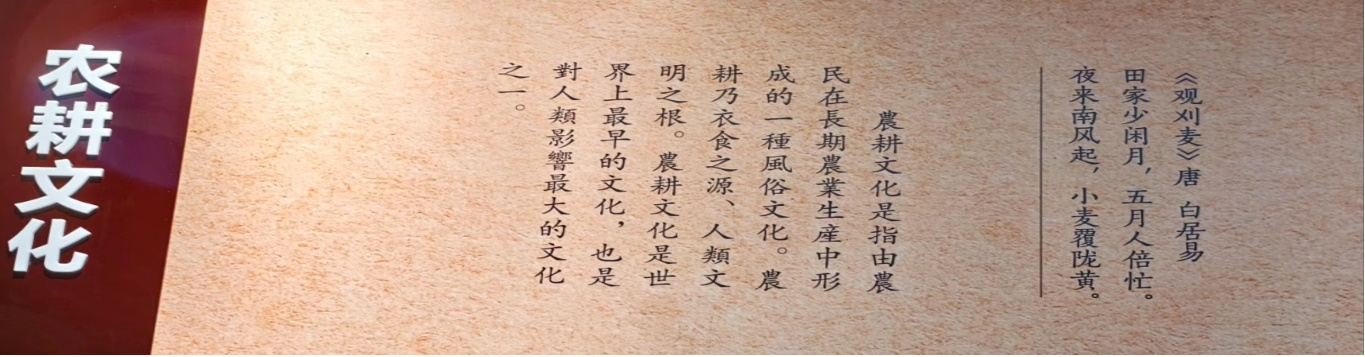 农耕文化
《观刈麦》唐 白居易
田家少闲月，五月人倍忙。
夜来南风起，小麦覆陇黄。
農耕文化是指由農
民在長期農業生産中形
成的一種風俗文化。農
耕乃衣食之源、人類文
明之根。農耕文化是世
界上最早的文化，也是
對人類影響最大的文化
之一。